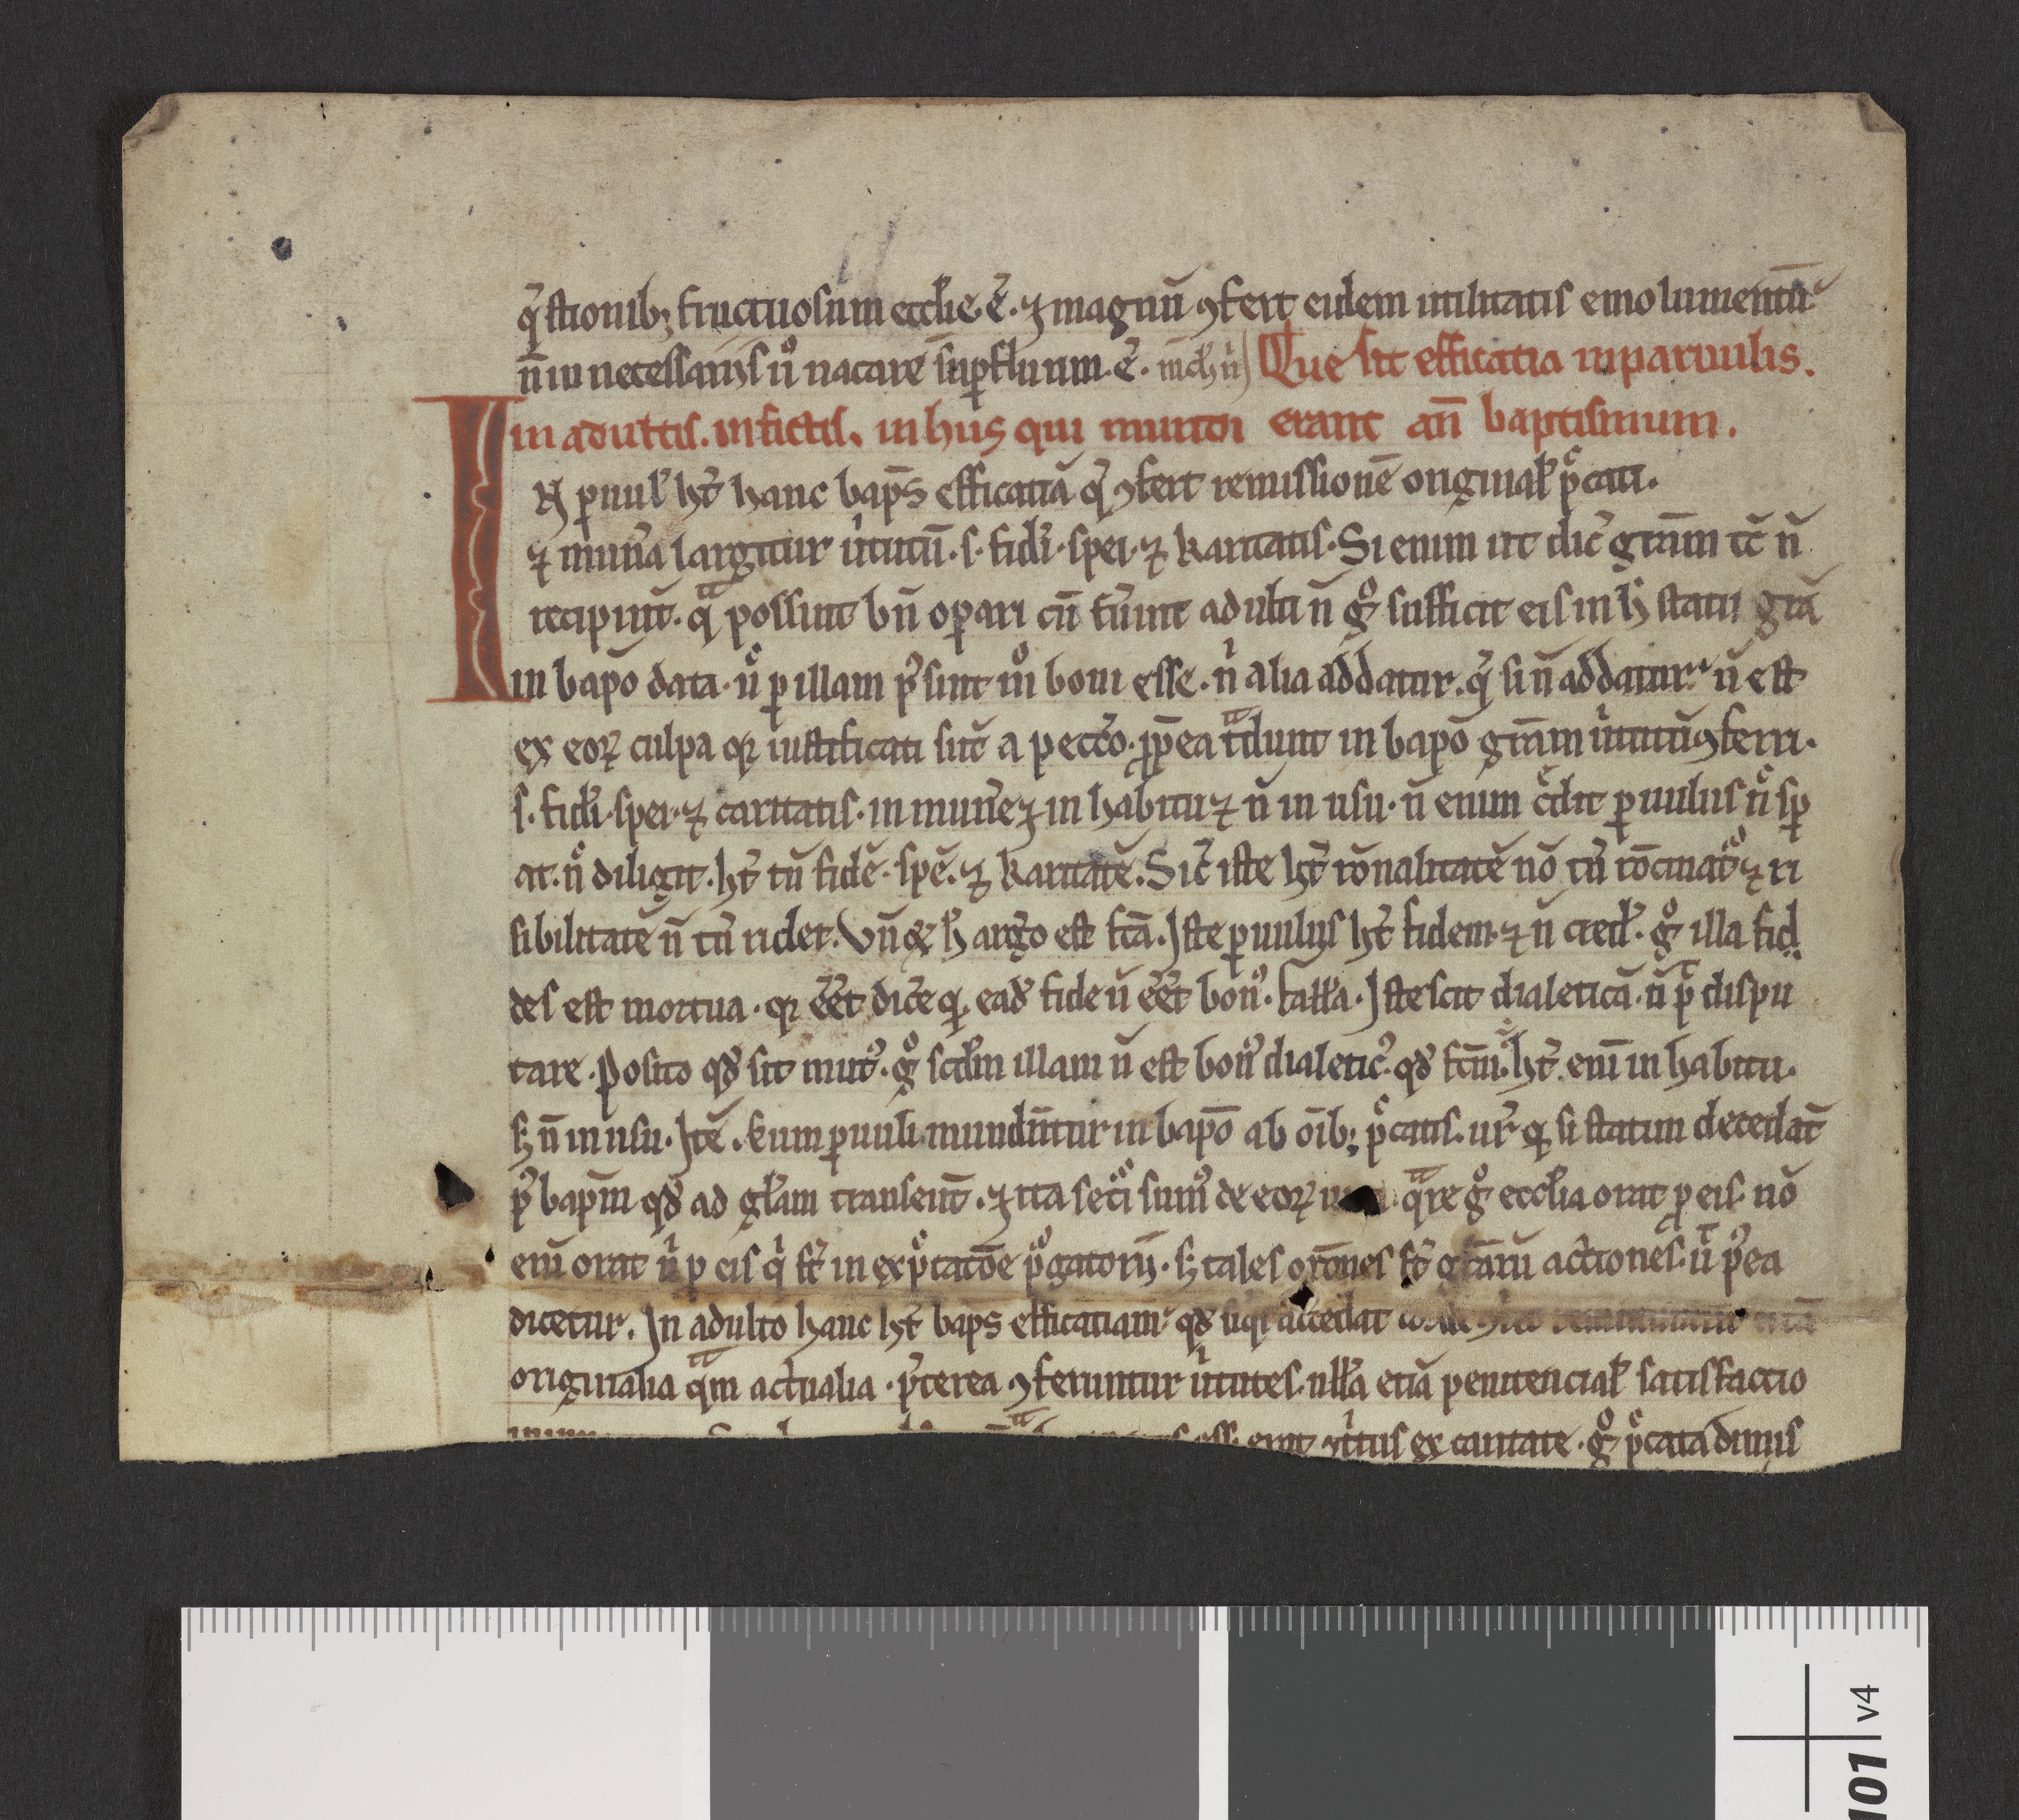 q̄stionibꝫ fructuosum eccl̄ie ē. ⁊ magnū ꝯfert eidem utilitatis emolumentū
n̄ in necessariis ů uacare suꝑfluum. ē. Que sit efficatia in paruulis.
in adultis. in fictis. in hiis qui mundi erant an̄ baptismum.
IN ꝑuul̓ hꝫ̄ hanc bap̄s efficatiā q̄ ꝯfert remissionē original̓ pͨcati.
⁊ mun̓a largitur v̓tutū .s. fidei. spei. ⁊ karitatis. Si enim ut dic̄ gr̄am tc̄ n̄
recipiūt. qᵃ possint bn̄ oꝑari cū fu̓int adulti n̄ gͦ sufficit eis in h̄ statu gr̄a
in bapō data. ů ꝑ illam p̄sunt mͦ boni esse. nⁱ alia addatur. q̄ si n̄ addatur n̄ est
ex eoꝝ culpa qꝛ iustificati sūt a pecc̄o. ꝓpea tᵃdunt in bapō gr̄am v̓tutū ꝯferri.
s. fidei. spei. ⁊ caritatis. in mun̓e ⁊ in habitu ⁊ n̄ in usu. n̄ enim cͤdit ꝑuulus nͨ sp̄
at. nͨ diligit. hꝫ̄ tn̄ fidē. spē. ⁊ karitatē. Sic̄ iste hꝫ̄ rōnalitatē nō tn̄ rōcinat᷑ ⁊ ri
sibilitatē n̄ tn̄ ridet. Vn̄ ⁊ h̄ arḡo est fc̄a. Iste ꝑuulus hꝫ̄ fidem ⁊ n̄ cred̓. gͦ illa fid
des est mortua. qꝛ eēt dic̄e qꝫ ead̄ fide n̄ eēt bonꝰ. fall̄a. Iste scit dialeticā. n̄ pͭ dispu
tare. Posito qd̄ sit mutꝰ. gͦ scd̄m illam n̄ est bonꝰ dialeticꝰ. qd̄ fc̄m. hꝫ̄ eni̅ in habitu.
sꝫ n̄ in usu. Itē. kum ꝑuuli mundēntur in bapō ab oībꝫ pͨcatis. ur̄ qꝫ si statim decedāt
pꝰ bap̄m qd̄ ad gl̄am transeūt. ⁊ ita sec̄i sumꝰ de eoꝝ qᵃre gͦ eccl̄ia orat ꝓ eis. nō
eni̅ orat nⁱ ꝓ eis qⁱ sꝫ̄ in expͨtatōe pͥgatorii. sꝫ tales or̄ones sꝫ̄ gr̄arū actiones. ut pꝰea
dicetur. In adulto hanc hꝫ̄ baps efficatiam. qd̄ si qⁱ accedat
originalia qᵃm actualia. p̄terea ꝯferuntur v̓tutes. null̄a etiā penitencial̓ satisfactio
ꝯt̓tus ex caritate. gͦ pͨcata dimis